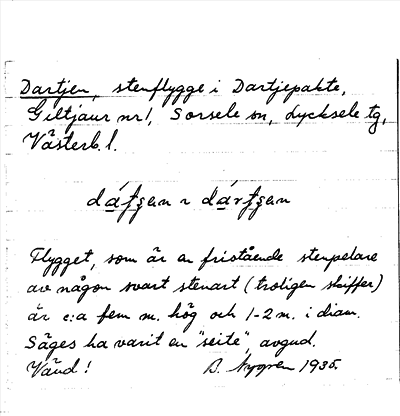 Dartjen, stenflygge i Dartjepakte,
Giltjaur nr 1, Sorsele sn, Lycksele tg,
Västerb. l.
dátʃen ~ dártʃen
Flygget, som är en fristående stenpelare
av någon svart stenart (troligen skiffer)
är c:a fem m. hög och 1-2 m. i diam.
Säges ha varit en "seite", avgud.
Vänd! B. Nygren 1935.